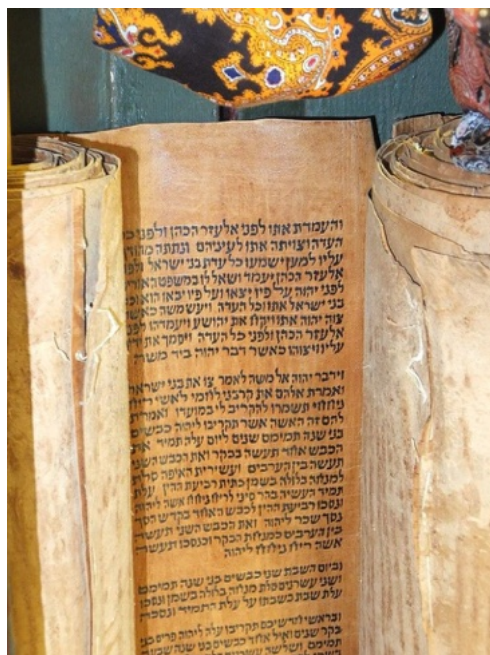 והעמדת אתו לפני אלעזר הכהן ולפני
העדה וצויתה אתו לעיניהם ונתתה
עליו למען ישמעו כל עדת בני ישראל
אלעזר הכהן יעמד ושאל לו במשפט
לפני יהוה על פיו יצאו ועל פיו יבאו הוא
בני ישראל אתו וכל העדה ויעש משה כאשר
צוה יהוה אתו ויקח את יהושע ויעמדהו
אלעזר הכהן ולפני כל העדה ויסמך את
עליו ויצוהו כאשר דבר יהוה ביד משה
וידבר יהוה אל משה לאמר צו את בני
ואמרת אלהם את קרבני לחמי לאשי ריח
ניחחי תשמרו להקריב לי במועדו ואמרת
להם זה האשה אשר תקריבו ליהוה כבשים
בני שנה תמימם שנים ליום עלה תמיד את
הכבש אחד תעשה בבקר ואת הכבש השני
תעשה בין הערבים ועשירית האיפה סלת
למנחה בלולה בשמן כתית רביעת ההין עלת
תמיד העשיה בהר סיני לריח ניחח אשה ליהוה
ונסכו רביעת ההין לכבש האחד בקדש הסך
נסך שכר ליהוה ואת הכבש השני תעשה
בין הערבים כמנחת הבקר וכנסכו תעשה
אשה ריח ניחח ליהוה
וביום השבת שני כבשים בני שנה תמימם
ושני עשרנים סלת מנחה בלולה בשמן ונסכו
עלת שבת בשבתו על עלת התמיד ונסכה
ובראשי חדשיכם תקריבו עלה ליהוה פרים בני
בקר שנים ואיל אחד כבשים בני שנה
תמימם ושלשה